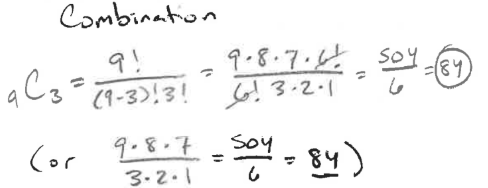 Combination
₉C₃ = 9!/(9-3)!3! = 9·8·7·6!/6! 3·2·1 = 504/6 = 84
(or 9·8·7/3·2·1 = 504/6 = 84)